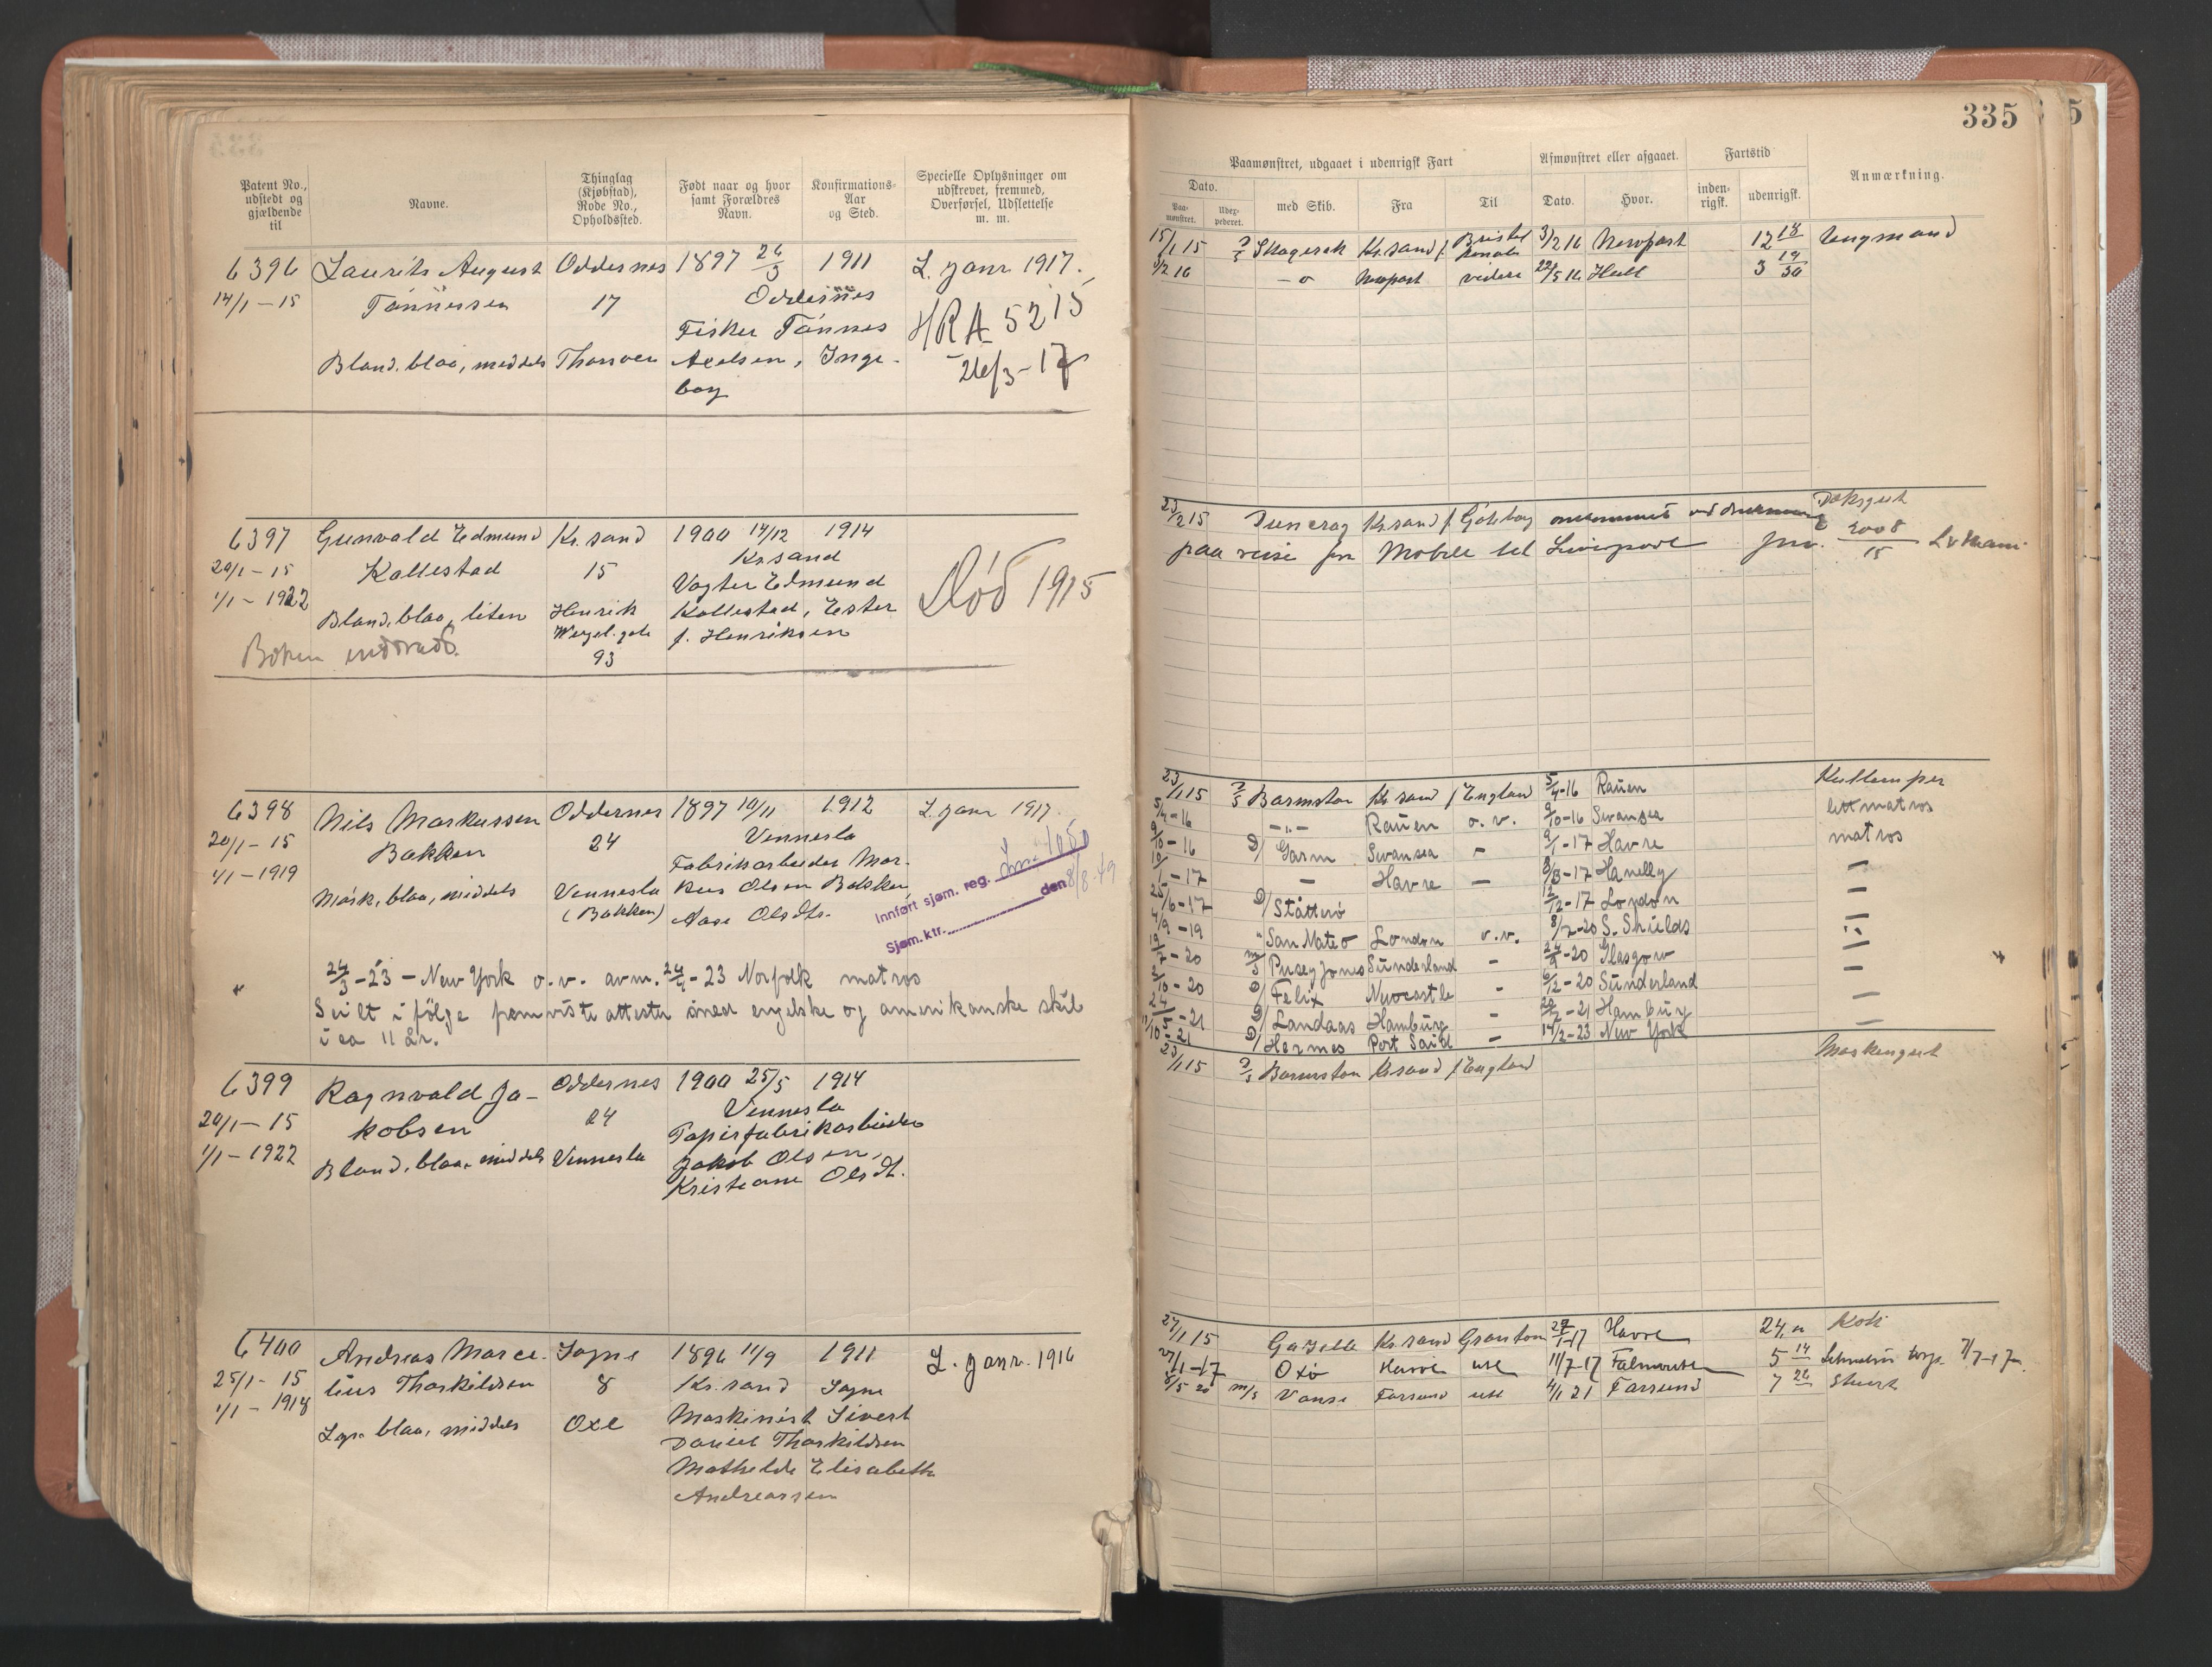 335
Patent No., udstedt og gjældende til
Navne.
Thinglag (Kjøbstad), Rode No., Opholdssted.
Født naar og hvor samt Forældres Navn.
Konfirmations-Aar og Sted.
Specielle Oplysninger om udskrevet, fremmed, Overførsel, Udslettelse m. m.
Paamønstret, udgaaet i udenrigsk Fart
Afmønstret eller afgaaet.
Fartstid
Anmærkning.
Dato.
med Skib.
Fra
Til
Dato.
Hvor.
inden-rigsk.
udenrigsk.
Paa-mønstret.
6396 Laurits August Oddernes 1897 26/3 1911 L. janr 1917.
14/1 - 15 Tønnessen 17 Oddernes
Fisker Tønnes HRA 5215
Bland. blaa, middels Axelsen, Inge- 26/3 - 17
borg
15/1 15 Skagerak Kr.sand f. Bristol 3/2 16 Newport 12 18 Ungmand
3/2 16 - o Newport videre 22/5 16 Hull 3 19/30
6397 Gunvald Edmund Kr. sand 1900 14/12 1914
20/1 - 15 Kallestad 15 Kr.sand
1/1 - 1922 Vagter Edmund Død 1915
Bland. blaa, liten Henrik Kallestad, Ester
Wergel. gate f. Henriksen
93
23/2 15 Kr.sand f. Göteborg omkommet ved Dæksgut
paa reise fra Mobile til Liverpool Jnr. 2008/15
6398 Nils Markussen Oddernes 1897 10/11 1912 L. janr 1917.
20/1 - 15 Bakken 24 Vennesla
1/1 - 1919 Fabrikarbeider Mar-
Mørk, blaa, middels Vennesla kus Olsen Bakken,
(Bakken) Aase Olsdtr.
Innført sjøm. reg. 1050
Sjøm.ktr. den 8/8-49
24/3 - 23 - New York o.v. avm. 24/4 - 23 Norfolk matros
Seilt i følge fremviste attester med engelske og amerikanske skib
i ca 11 år.
23/1 15 Barmston Kr.sand f. England 5/4-16 Rauen
5/4-16 -"- Rauen o.v. 9/10-16 Swansea lettmatros
9/10 - 16 D/ Garm Swansea - 9/1 - 17 Havre matros
10/1 - 17 - Havre - 3/3 - 17
25/6 - 17 D/ Ståtterø 12/12 - 17 London
4/9 - 19 " San Mateo London o.v. 8/7 - 20 S. Shields
19/7 - 20 m/s Pusey Jones Sunderland - 24/9 - 20 Glasgow
2/10 - 20 D/ Felix Newcastle - 6/12 - 20 Sunderland
24/5 - 21 D/ Landaas Hamburg - 21 Hamburg
11/10 - 21 D/ Hermes Port Said - 14/2 - 23 New York
6399 Ragnvald Ja- Oddernes 1900 25/5 1914
20/1 - 15 kobsen 24 Vennesla
1/1 - 1922 Papirfabrikarbeider
Bland. blaa, middels Vennesla Jakob Olsen,
Kristiane Olsdt.
23/1 15 Barmston Kr.sand f. England Maskingut
6400 Andreas Marce- Søgne 1896 11/9 1911 L. janr. 1916
25/1 - 15 lius Thorkildsen 8 Kr. sand Søgne
1/1 - 1918 Maskinist Sivert
Lys, blaa, middels Oxe Daniel Thorkildsen
Mathilde Elisabeth
Andreassen
27/1 15 Gazelle Kr.sand Granton 27/1-17 Havre Kok
27/1-17 Oxø Havre 11/7-17 Falmouth 5 14
8/5 20 m/s Vanse Farsund 4/1 21 Farsund 7 26